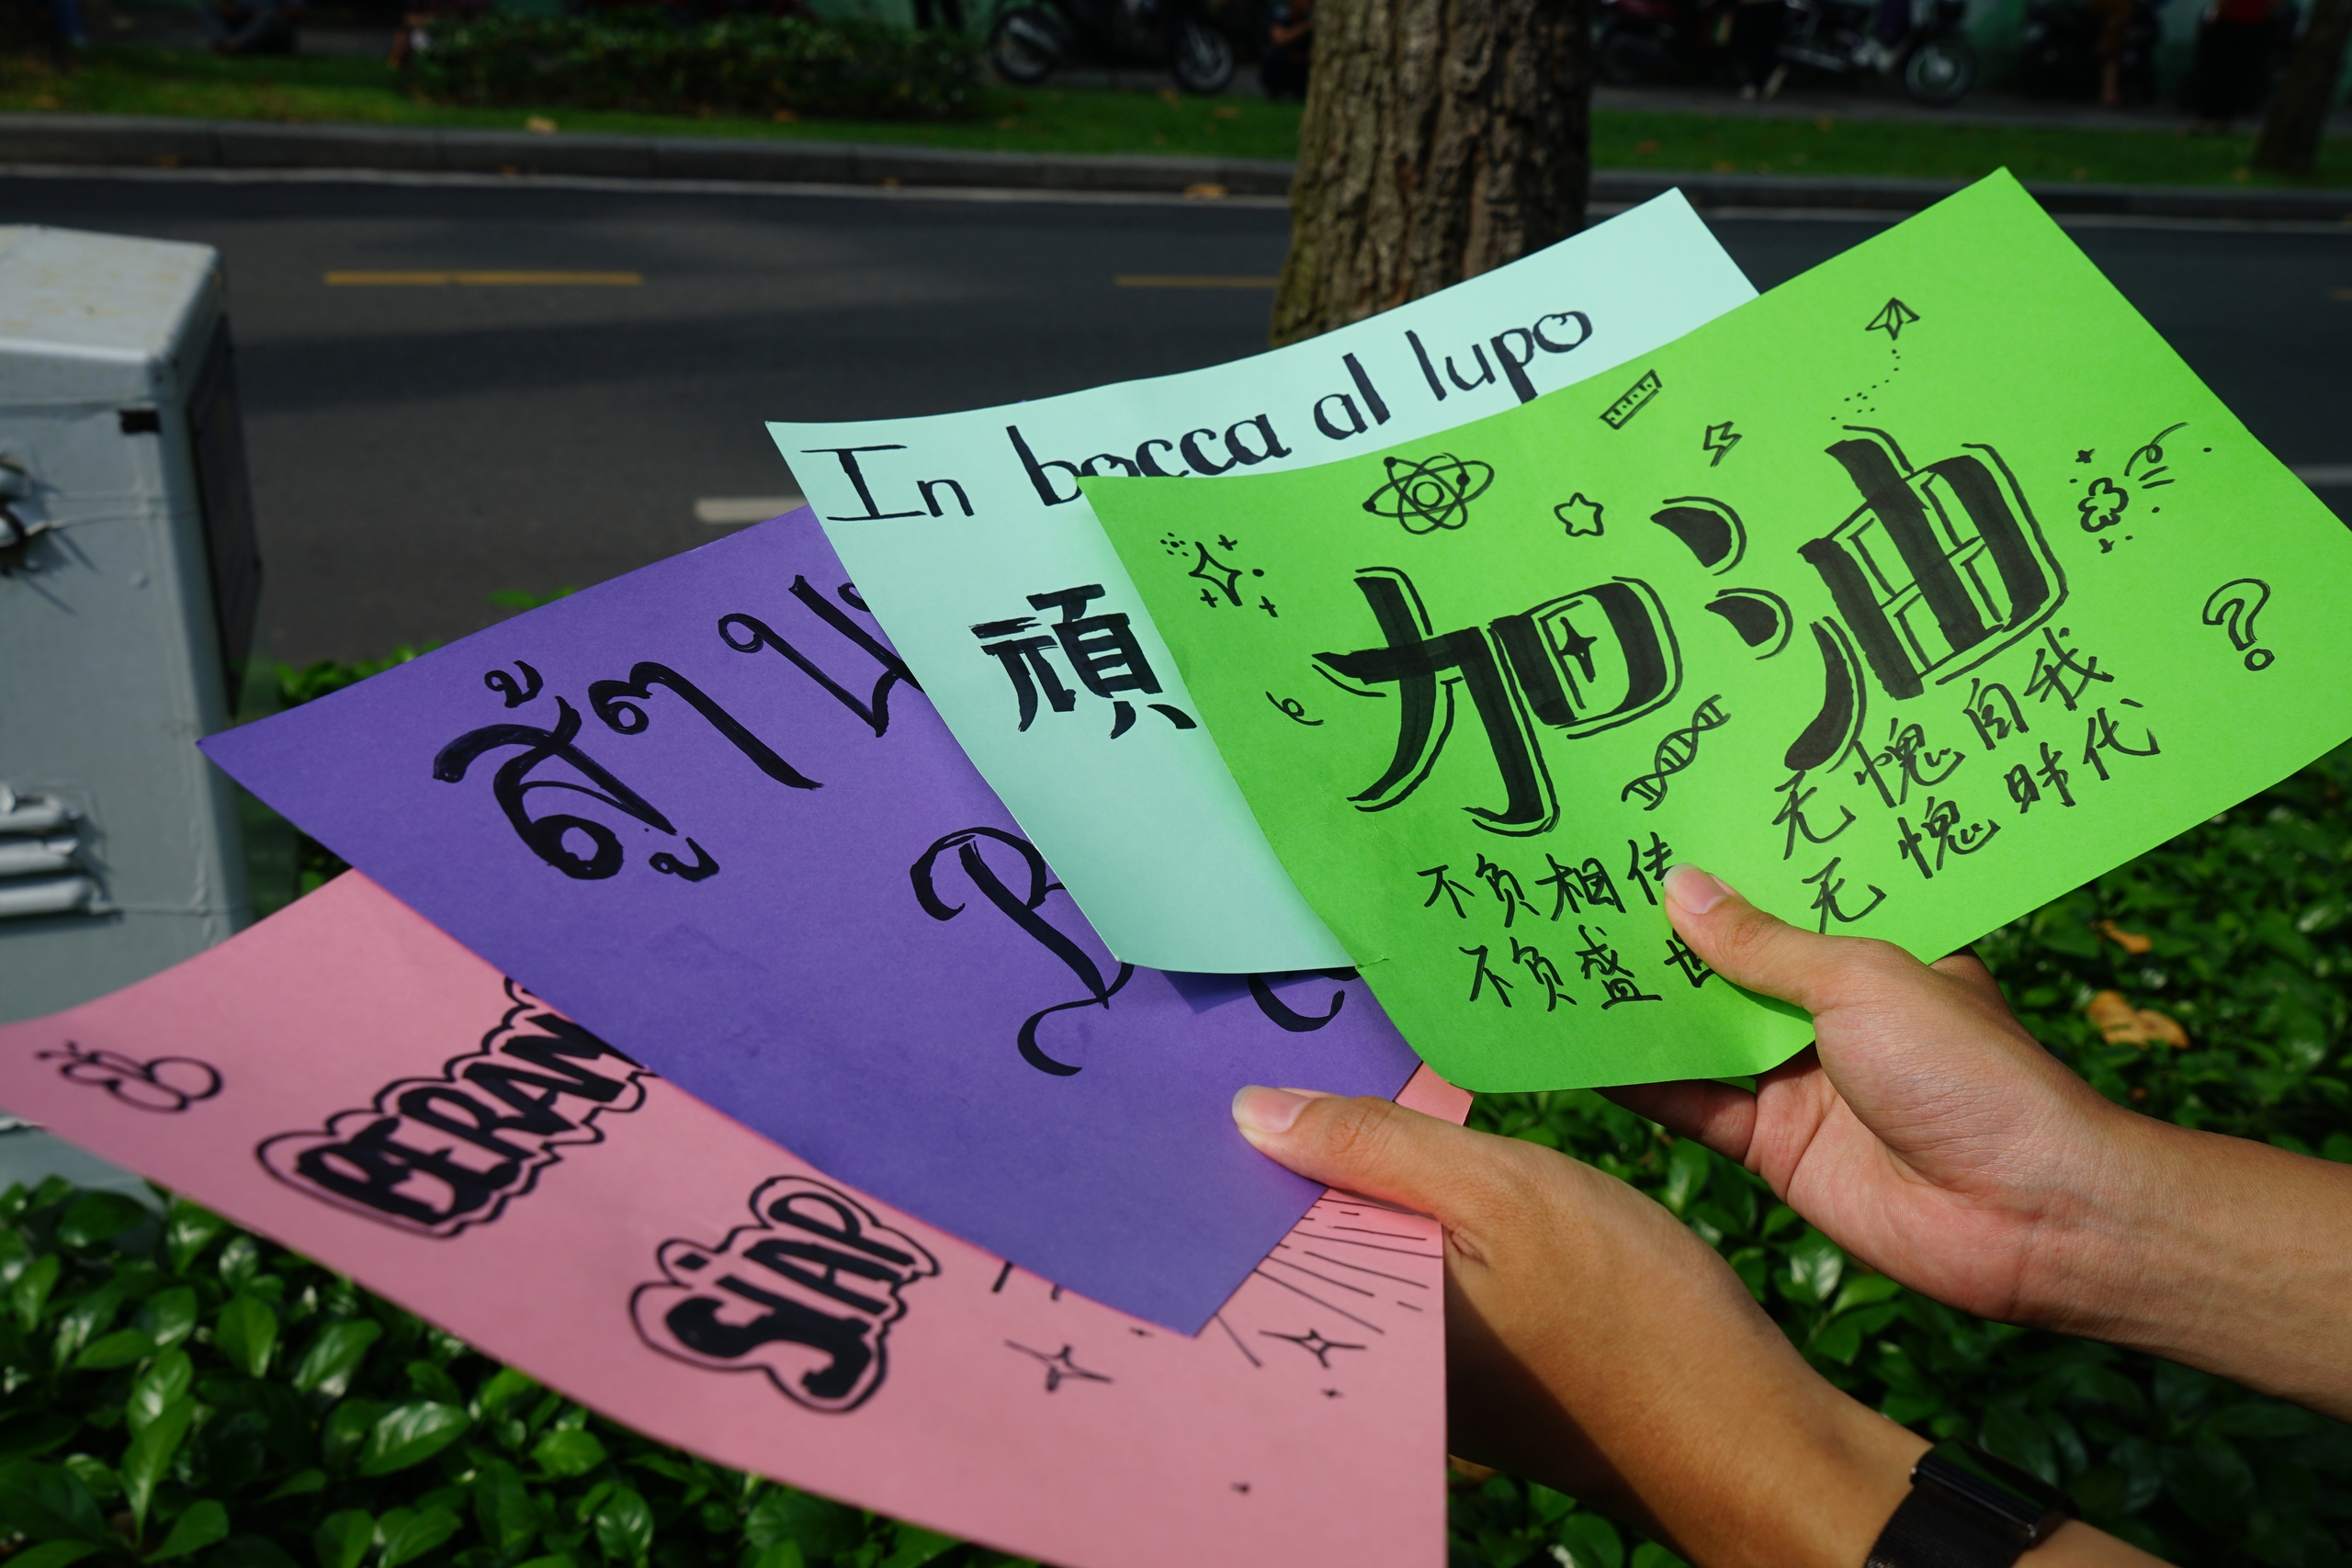 In bocca al lupo
頑
加油
无愧自我
无愧时代
不负相传
不负盛世
สู้ๆ
BERAN
SIAP